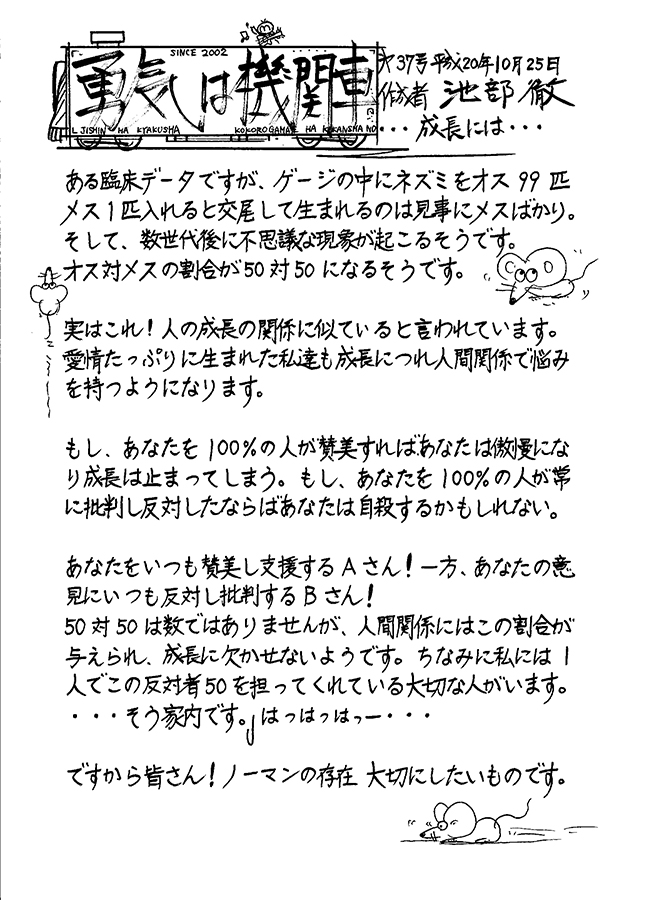 SINCE 2002
勇気は機関車
JISHIN HA KYAKUSHA KOKOROGAMAE HA KIKANSHA NO
第37号 平成20年10月25日
作成者 池部 徹
・・・成長には・・・
ある臨床データですが、ゲージの中にネズミをオス 99 匹
メス1匹入れると交尾して生まれるのは見事にメスばかり。
そして、数世代後に不思議な現象が起こるそうです。
オス対メスの割合が50対50になるそうです。
実はこれ!人の成長の関係に似ていると言われています。
愛情たっぷりに生まれた私達も成長につれ人間関係で悩み
を持つようになります。
もし、あなたを 100%の人が賛美すればあなたは傲慢にな
り成長は止まってしまう。もし、あなたを 100%の人が常
に批判し反対したならばあなたは自殺するかもしれない。
あなたをいつも賛美し支援する Aさん!一方、あなたの意
見にいつも反対し批判する Bさん!
50対50は数ではありませんが、人間関係にはこの割合が
与えられ、成長に欠かせないようです。ちなみに私には 1
人でこの反対者50を担ってくれている大切な人がいます。
・・・そう家内です。はっはっはっー・・・
ですから皆さん!ノーマンの存在 大切にしたいものです。